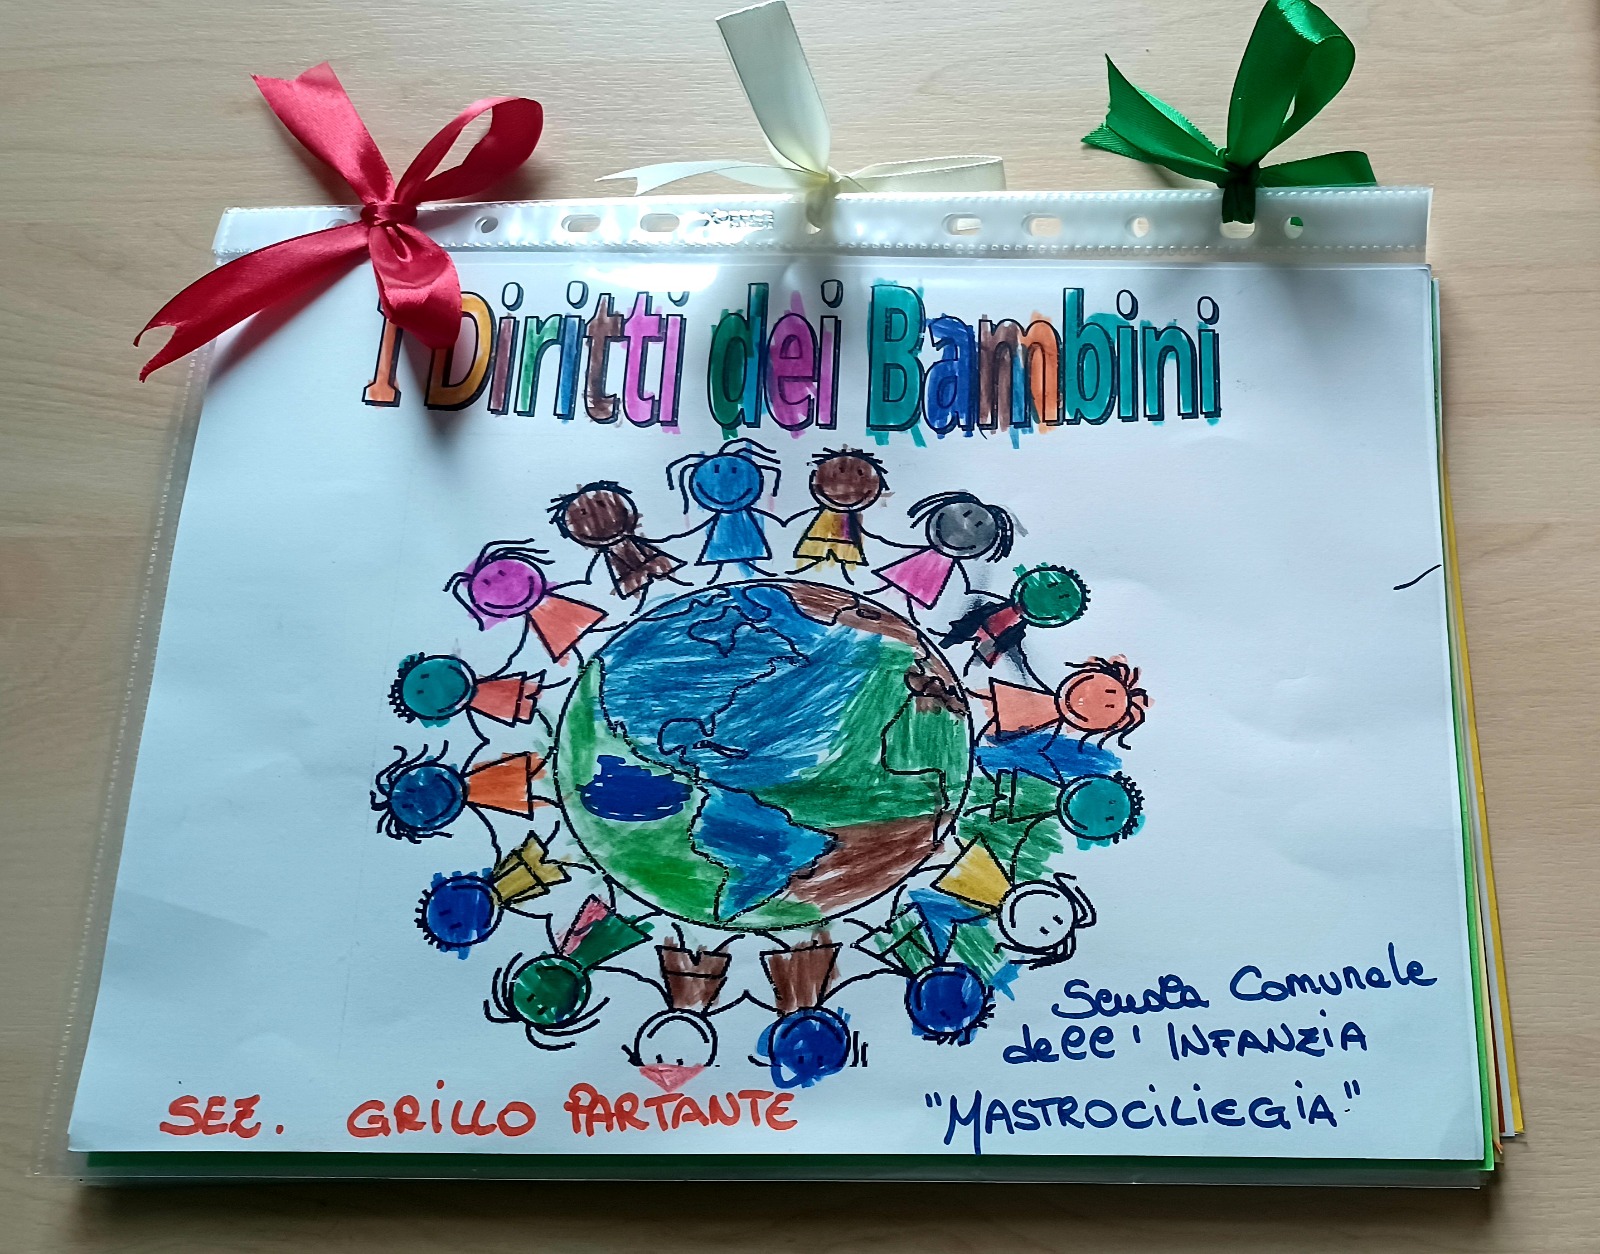 I Diritti dei Bambini
Scuola Comunale
dell' INFANZIA
"MASTROCILIEGIA"
SEZ. GRILLO PARTANTE